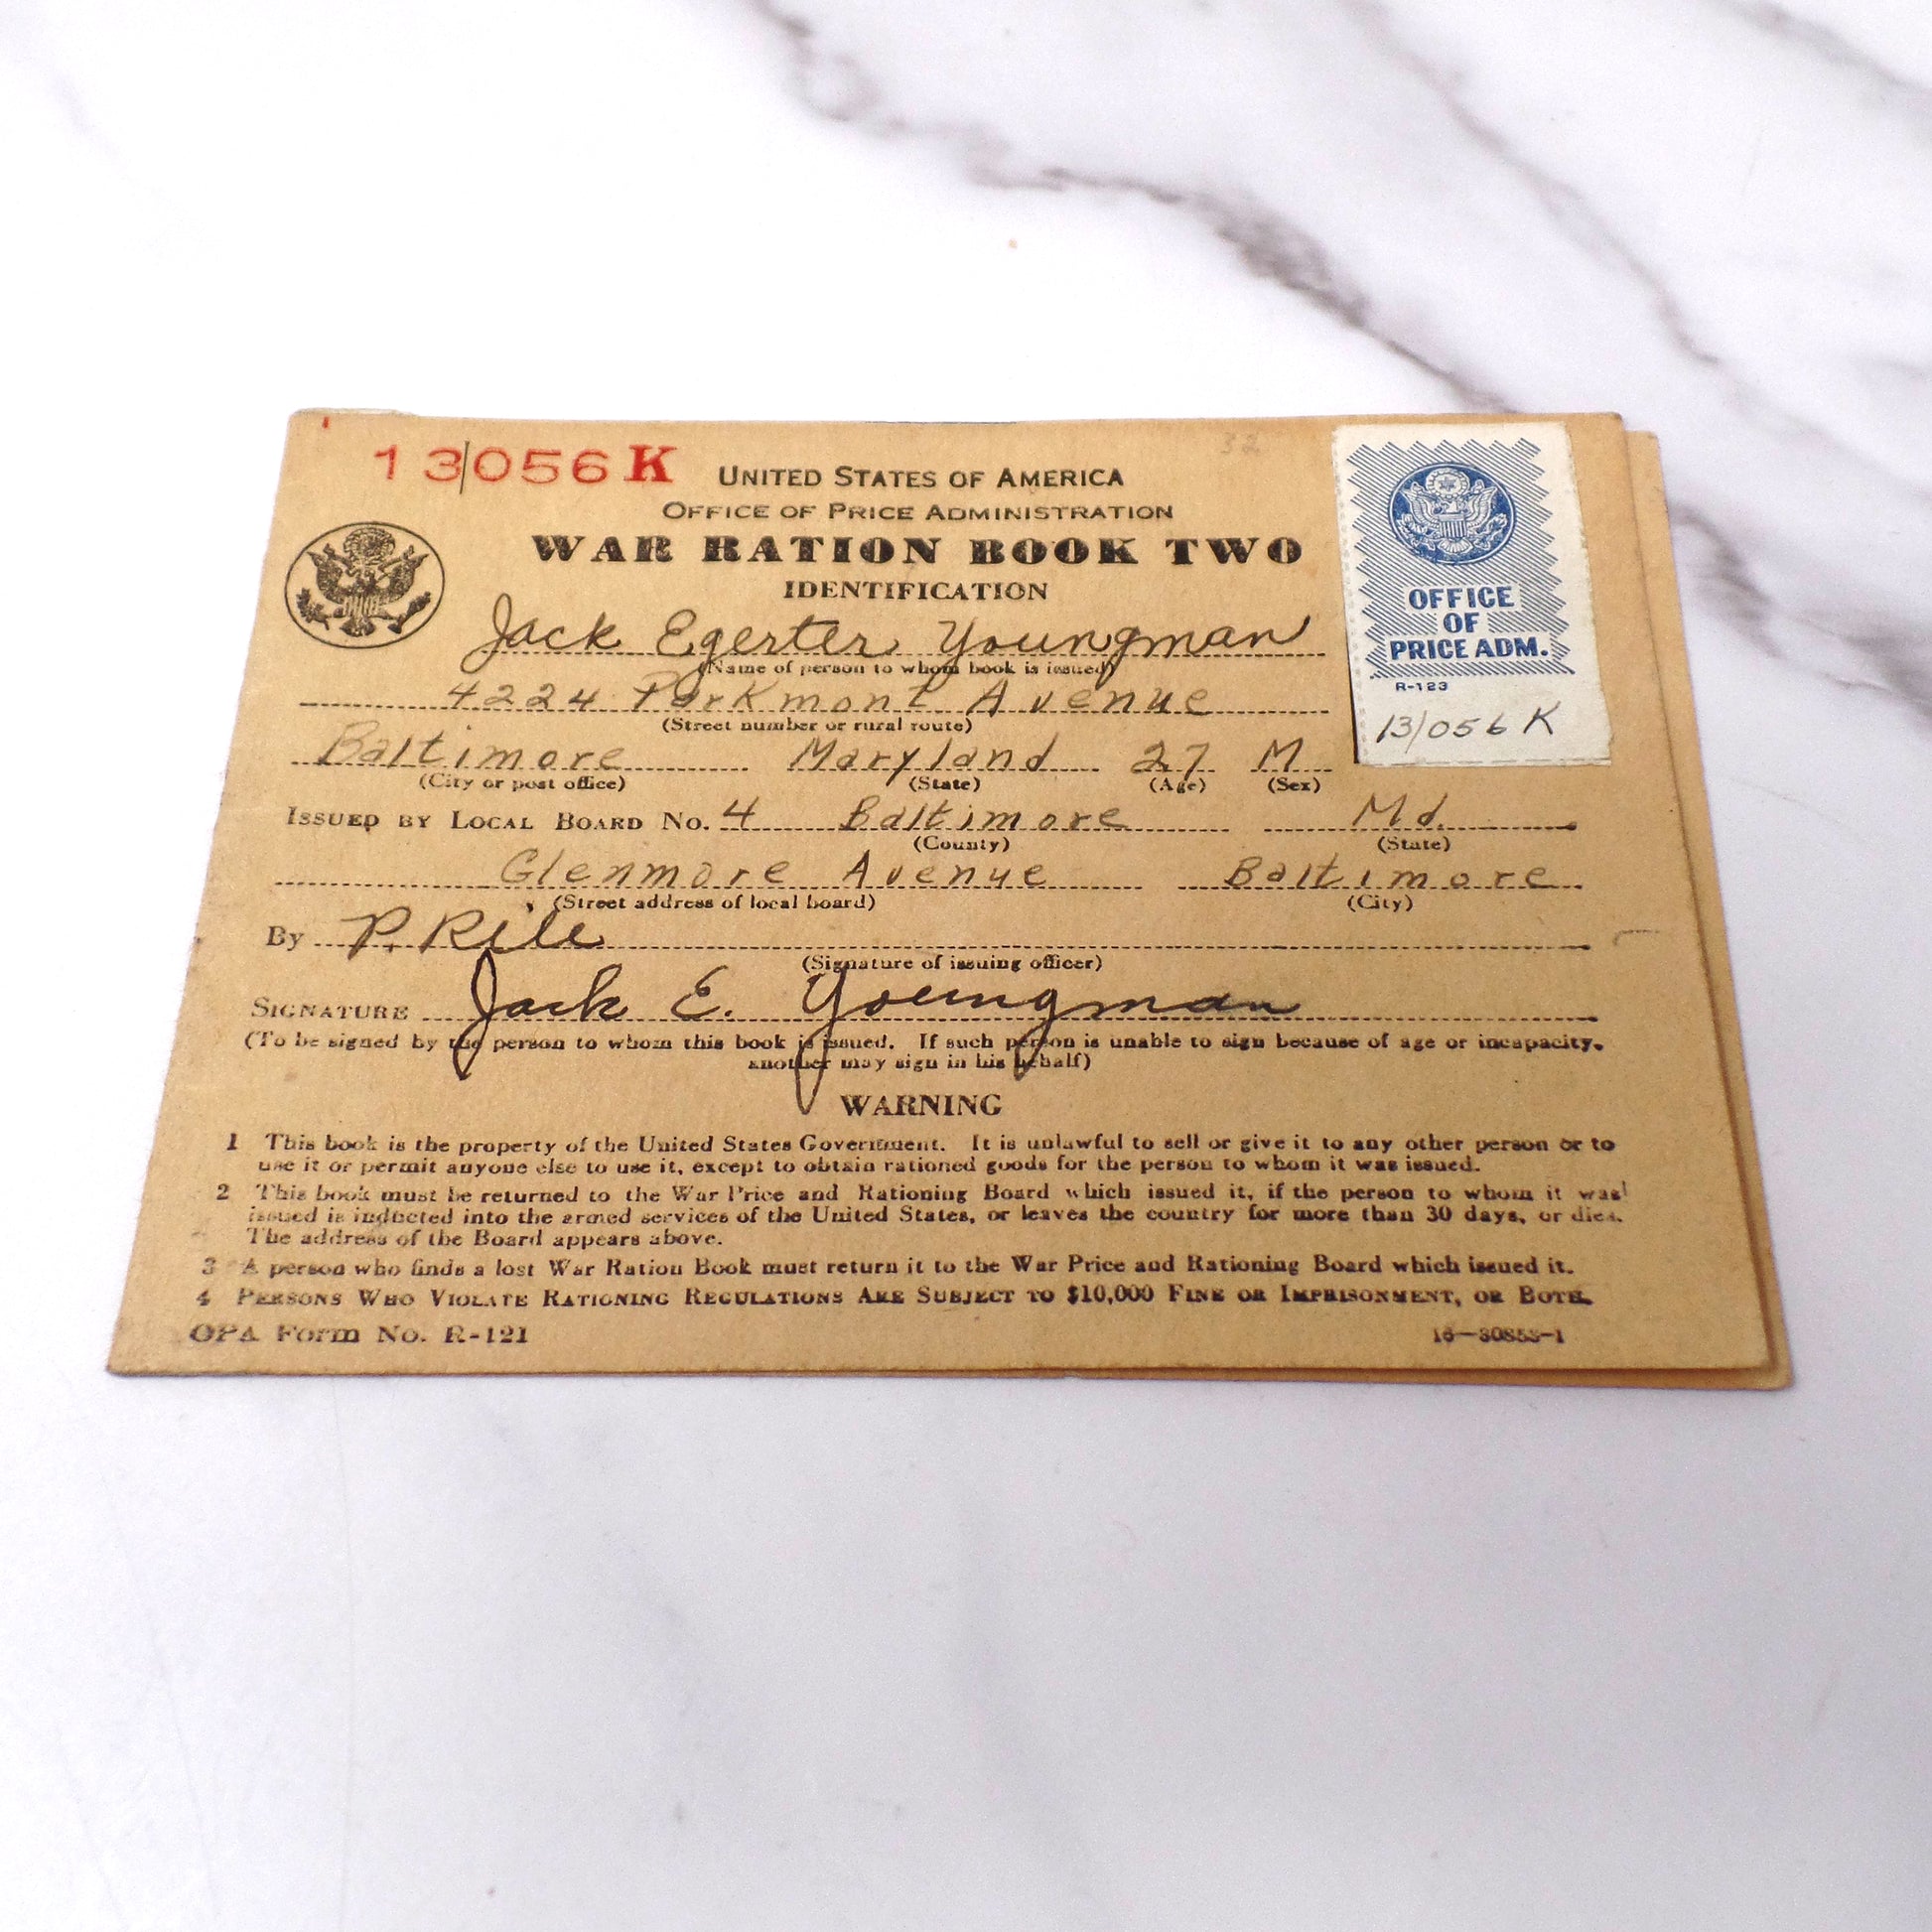 13/056 K
UNITED STATES OF AMERICA
OFFICE OF PRICE ADMINISTRATION
WAR RATION BOOK TWO
IDENTIFICATION
Jack Egerter Youngman
(Name of person to whom book is issued)
4224 Parkmont Avenue
(Street number or rural route)
Baltimore Maryland 27 M
(City or post office) (State) (Age) (Sex)
ISSUED BY LOCAL BOARD NO. 4 Baltimore Md.
(County) (State)
Glenmore Avenue Baltimore
(Street address of local board) (City)
By P. Rile
(Signature of issuing officer)
SIGNATURE Jack E. Youngman
(To be signed by the person to whom this book is issued. If such person is unable to sign because of age or incapacity,
another may sign in his behalf)
WARNING
1 This book is the property of the United States Government. It is unlawful to sell or give it to any other person or to
use it or permit anyone else to use it, except to obtain rationed goods for the person to whom it was issued.
2 This book must be returned to the War Price and Rationing Board which issued it, if the person to whom it was
issued is inducted into the armed services of the United States, or leaves the country for more than 30 days, or dies.
The address of the Board appears above.
3 A person who finds a lost War Ration Book must return it to the War Price and Rationing Board which issued it.
4 PERSONS WHO VIOLATE RATIONING REGULATIONS ARE SUBJECT TO $10,000 FINE OR IMPRISONMENT, OR BOTH.
OPA Form No. R-121 16—30853-1
32
OFFICE
OF
PRICE ADM.
R-123
13/056 K